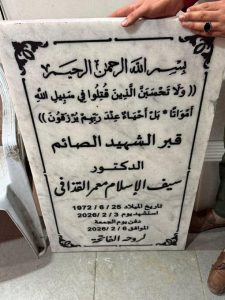 بسم الله الرحمن الرحيم
((ولا تحسبن الذين قتلوا في سبيل الله
أمواتا * بل أحياء عند ربهم يرزقون))
قبر الشهيد الصائم
الدكتور
سيف الإسلام معمر القذافي
تاريخ الميلاد 25 / 6 / 1972
استشهد يوم 3 / 2 / 2026
دفن يوم الجمعة
الموافق 6 / 2 / 2026
لروحه الفاتحة